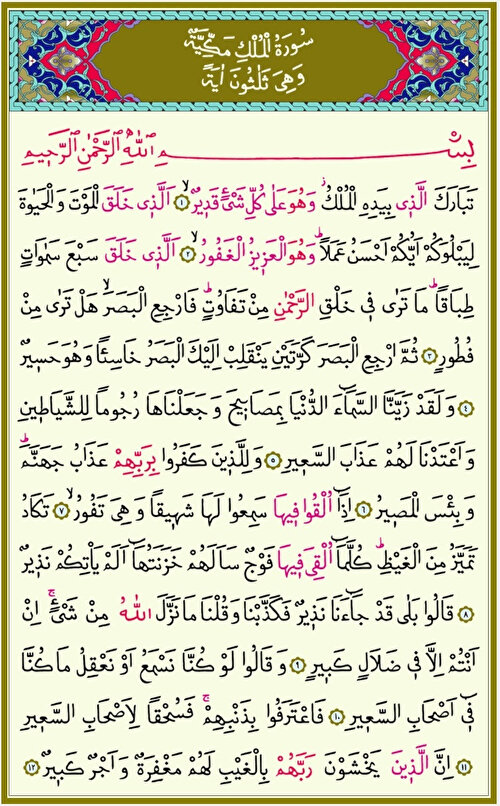 سُورَةُ الْمُلْكِ مَكِّيَّةٌ
وَهِيَ ثَلٰثُونَ اٰيَةً
بِسْمِ اللّٰهِ الرَّحْمٰنِ الرَّحِيمِ
تَبَارَكَ الَّذِي بِيَدِهِ الْمُلْكُۘ وَهُوَ عَلٰى كُلِّ شَيْءٍ قَدِيرٌۙ ﴿١﴾ اَلَّذِي خَلَقَ الْمَوْتَ وَالْحَيٰوةَ
لِيَبْلُوَكُمْ اَيُّكُمْ اَحْسَنُ عَمَلًاۜ وَهُوَ الْعَزِيزُ الْغَفُورُۙ ﴿٢﴾ اَلَّذِي خَلَقَ سَبْعَ سَمٰوَاتٍ
طِبَاقًاۜ مَا تَرٰى فِي خَلْقِ الرَّحْمٰنِ مِنْ تَفَاوُتٍۜ فَارْجِعِ الْبَصَرَۙ هَلْ تَرٰى مِنْ
فُطُورٍ ﴿٣﴾ ثُمَّ ارْجِعِ الْبَصَرَ كَرَّتَيْنِ يَنْقَلِبْ اِلَيْكَ الْبَصَرُ خَاسِئًا وَهُوَ حَسِيرٌ
﴿٤﴾ وَلَقَدْ زَيَّنَّا السَّمَاءَ الدُّنْيَا بِمَصَابِيحَ وَجَعَلْنَاهَا رُجُومًا لِلشَّيَاطِينِ
وَاَعْتَدْنَا لَهُمْ عَذَابَ السَّعِيرِ ﴿٥﴾ وَلِلَّذِينَ كَفَرُوا بِرَبِّهِمْ عَذَابُ جَهَنَّمَۜ
وَبِئْسَ الْمَصِيرُ ﴿٦﴾ اِذَا اُلْقُوا فِيهَا سَمِعُوا لَهَا شَهِيقًا وَهِيَ تَفُورُۙ ﴿٧﴾ تَكَادُ
تَمَيَّزُ مِنَ الْغَيْظِۜ كُلَّمَا اُلْقِيَ فِيهَا فَوْجٌ سَاَلَهُمْ خَزَنَتُهَا اَلَمْ يَأْتِكُمْ نَذِيرٌ
﴿٨﴾ قَالُوا بَلٰى قَدْ جَاءَنَا نَذِيرٌ فَكَذَّبْنَا وَقُلْنَا مَا نَزَّلَ اللّٰهُ مِنْ شَيْءٍۚ اِنْ
اَنْتُمْ اِلَّا فِي ضَلَالٍ كَبِيرٍ ﴿٩﴾ وَقَالُوا لَوْ كُنَّا نَسْمَعُ اَوْ نَعْقِلُ مَا كُنَّا
فِي اَصْحَابِ السَّعِيرِ ﴿١٠﴾ فَاعْتَرَفُوا بِذَنْبِهِمْۚ فَسُحْقًا لِاَصْحَابِ السَّعِيرِ
﴿١١﴾ اِنَّ الَّذِينَ يَخْشَوْنَ رَبَّهُمْ بِالْغَيْبِ لَهُمْ مَغْفِرَةٌ وَاَجْرٌ كَبِيرٌ ﴿١٢﴾